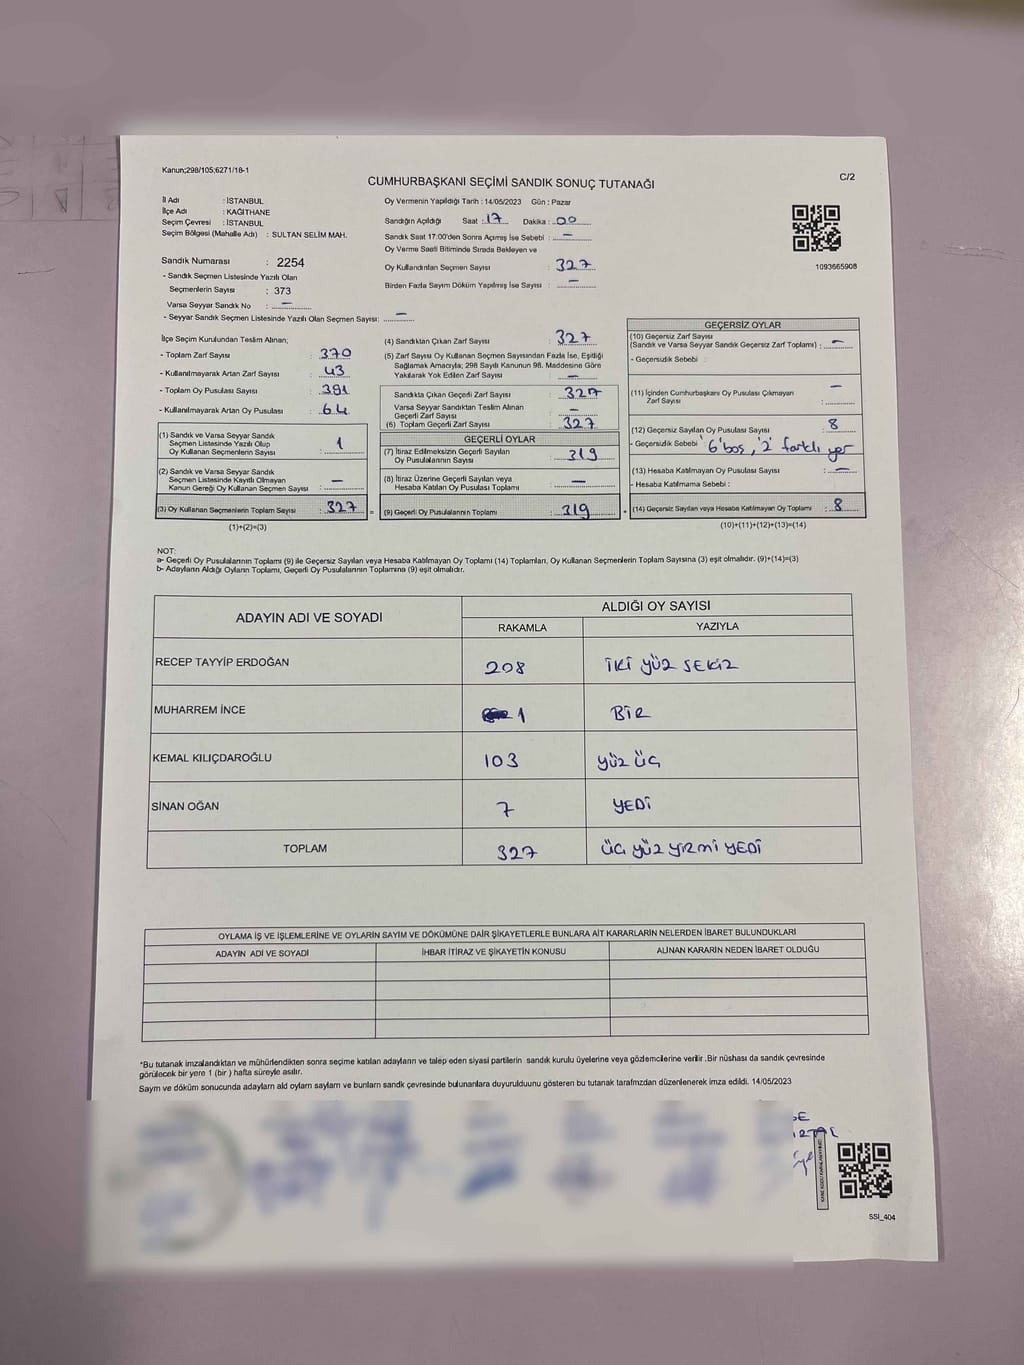 Kanun;298/105;6271/18-1
CUMHURBAŞKANI SEÇİMİ SANDIK SONUÇ TUTANAĞI
C/2
İl Adı : İSTANBUL
İlçe Adı : KAĞITHANE
Seçim Çevresi : İSTANBUL
Seçim Bölgesi (Mahalle Adı) : SULTAN SELİM MAH.
Sandık Numarası : 2254
- Sandık Seçmen Listesinde Yazılı Olan
Seçmenlerin Sayısı : 373
Varsa Seyyar Sandık No : —
- Seyyar Sandık Seçmen Listesinde Yazılı Olan Seçmen Sayısı: —
Oy Vermenin Yapıldığı Tarih : 14/05/2023 Gün : Pazar
Sandığın Açıldığı Saat : 17 Dakika : 00
Sandık Saat 17:00'den Sonra Açımış İse Sebebi : —
Oy Verme Saati Bitiminde Sırada Bekleyen ve
Oy Kullandırılan Seçmen Sayısı : 327
Birden Fazla Sayım Döküm Yapılmış İse Sayısı : —
1093665908
İlçe Seçim Kurulundan Teslim Alınan;
- Toplam Zarf Sayısı : 370
- Kullanılmayarak Artan Zarf Sayısı : 43
- Toplam Oy Pusulası Sayısı : 391
- Kullanılmayarak Artan Oy Pusulası : 64
(1) Sandık ve Varsa Seyyar Sandık
Seçmen Listesinde Yazılı Olup
Oy Kullanan Seçmenlerin Sayısı : 1
(2) Sandık ve Varsa Seyyar Sandık
Seçmen Listesinde Kayıtlı Olmayan
Kanun Gereği Oy Kullanan Seçmen Sayısı : —
(3) Oy Kullanan Seçmenlerin Toplam Sayısı : 327
(1)+(2)=(3)
(4) Sandıktan Çıkan Zarf Sayısı : 327
(5) Zarf Sayısı Oy Kullanan Seçmen Sayısından Fazla İse, Eşitliği
Sağlamak Amacıyla; 298 Sayılı Kanunun 98. Maddesine Göre
Yakılarak Yok Edilen Zarf Sayısı : —
Sandıkta Çıkan Geçerli Zarf Sayısı : 327
Varsa Seyyar Sandıktan Teslim Alınan
Geçerli Zarf Sayısı : —
(6) Toplam Geçerli Zarf Sayısı : 327
GEÇERLİ OYLAR
(7) İtiraz Edilmeksizin Geçerli Sayılan
Oy Pusulalarının Sayısı : 319
(8) İtiraz Üzerine Geçerli Sayılan veya
Hesaba Katılan Oy Pusulası Toplamı : —
= (9) Geçerli Oy Pusulalarının Toplamı : 319
GEÇERSİZ OYLAR
(10) Geçersiz Zarf Sayısı
(Sandık ve Varsa Seyyar Sandık Geçersiz Zarf Toplamı) : —
- Geçersizlik Sebebi
(11) İçinden Cumhurbaşkanı Oy Pusulası Çıkmayan
Zarf Sayısı : —
(12) Geçersiz Sayılan Oy Pusulası Sayısı : 8
- Geçersizlik Sebebi '6' boş, '2' farklı yer
(13) Hesaba Katılmayan Oy Pusulası Sayısı : —
- Hesaba Katılmama Sebebi :
(14) Geçersiz Sayılan veya Hesaba Katılmayan Oy Toplamı : 8
(10)+(11)+(12)+(13)=(14)
NOT:
a- Geçerli Oy Pusulalarının Toplamı (9) ile Geçersiz Sayılan veya Hesaba Katılmayan Oy Toplamı (14) Toplamları, Oy Kullanan Seçmenlerin Toplam Sayısına (3) eşit olmalıdır. (9)+(14)=(3)
b- Adayların Aldığı Oyların Toplamı, Geçerli Oy Pusulalarının Toplamına (9) eşit olmalıdır.
ADAYIN ADI VE SOYADI ALDIĞI OY SAYISI
RAKAMLA YAZIYLA
RECEP TAYYİP ERDOĞAN 208 İKİ YÜZ SEKİZ
MUHARREM İNCE 1 BİR
KEMAL KILIÇDAROĞLU 103 YÜZ ÜÇ
SİNAN OĞAN 7 YEDİ
TOPLAM 327 ÜÇ YÜZ YİRMİ YEDİ
OYLAMA İŞ VE İŞLEMLERİNE VE OYLARIN SAYIM VE DÖKÜMÜNE DAİR ŞİKAYETLERLE BUNLARA AİT KARARLARIN NELERDEN İBARET BULUNDUKLARI
ADAYIN ADI VE SOYADI İHBAR İTİRAZ VE ŞİKAYETİN KONUSU ALINAN KARARIN NEDEN İBARET OLDUĞU
*Bu tutanak imzalandıktan ve mühürlendikten sonra seçime katılan adayların ve talep eden siyasi partilerin sandık kurulu üyelerine veya gözlemcilerine verilir .Bir nüshası da sandık çevresinde
görülecek bir yere 1 (bir ) hafta süreyle asılır.
Sayım ve döküm sonucunda adayların ald oyların sayları ve bunların sandk çevresinde bulunanlara duyurulduunu gösteren bu tutanak tarafmzdan düzenlenerek imza edildi. 14/05/2023
SSİ_404